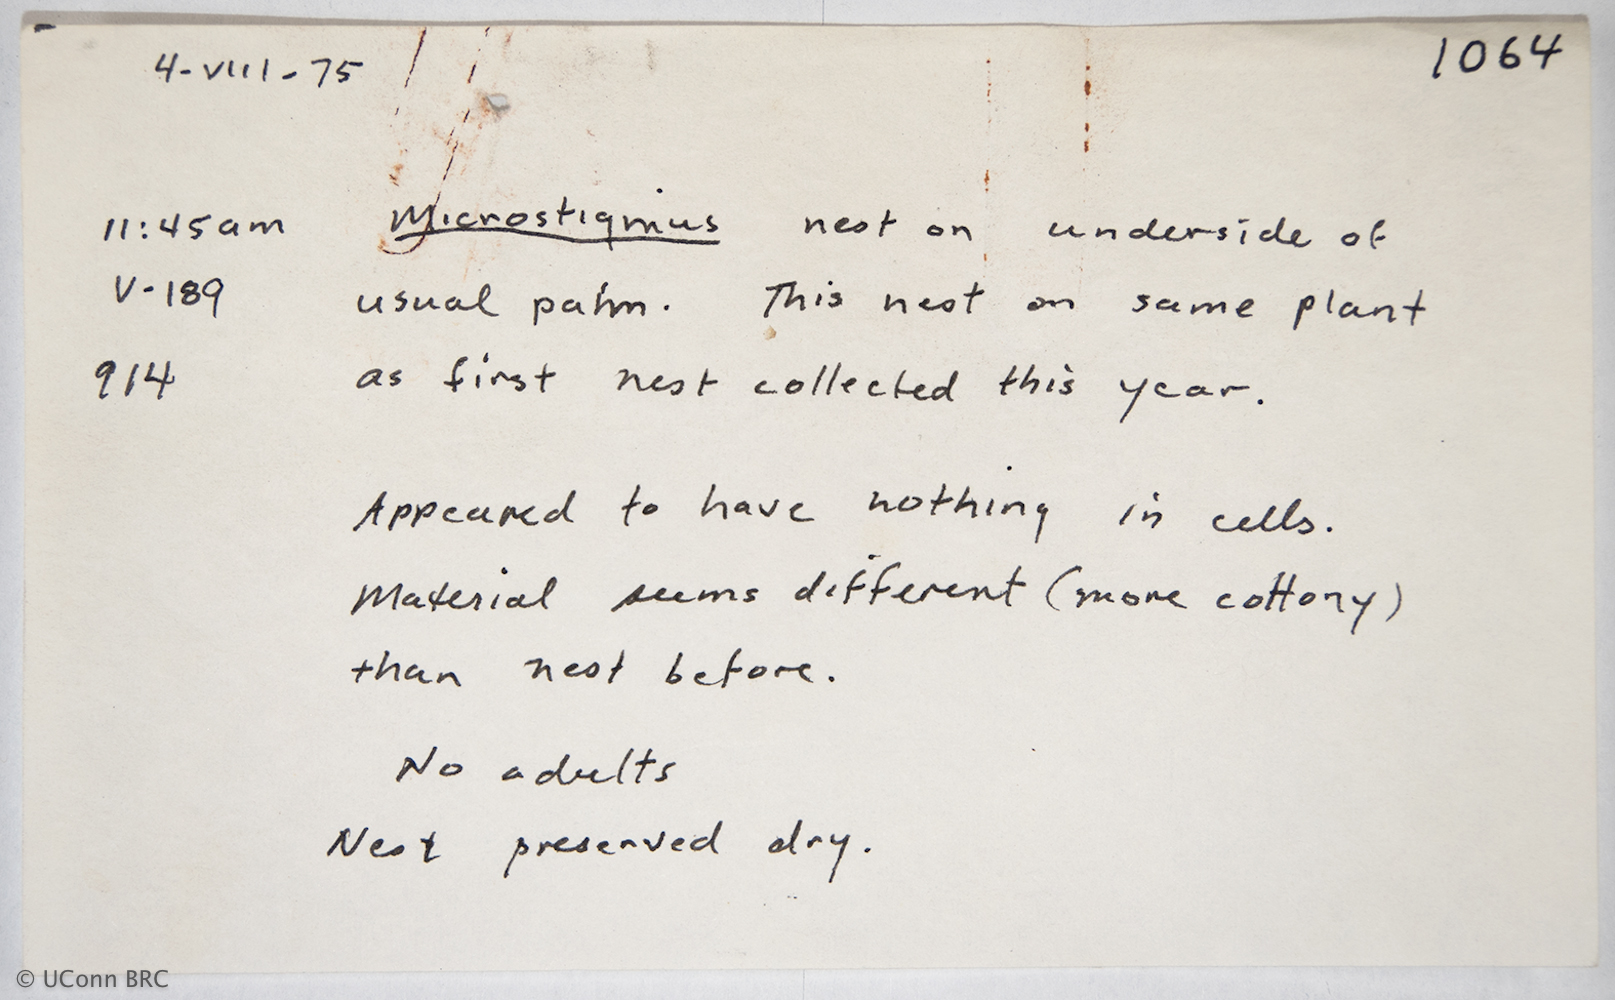 4-VIII-75
1064
11:45am Microstigmus nest on underside of
V-189 usual palm. This nest on same plant
914 as first nest collected this year.
Appeared to have nothing in cells.
Material seems different (more cottony)
than nest before.
No adults
Nest preserved dry.
© UConn BRC